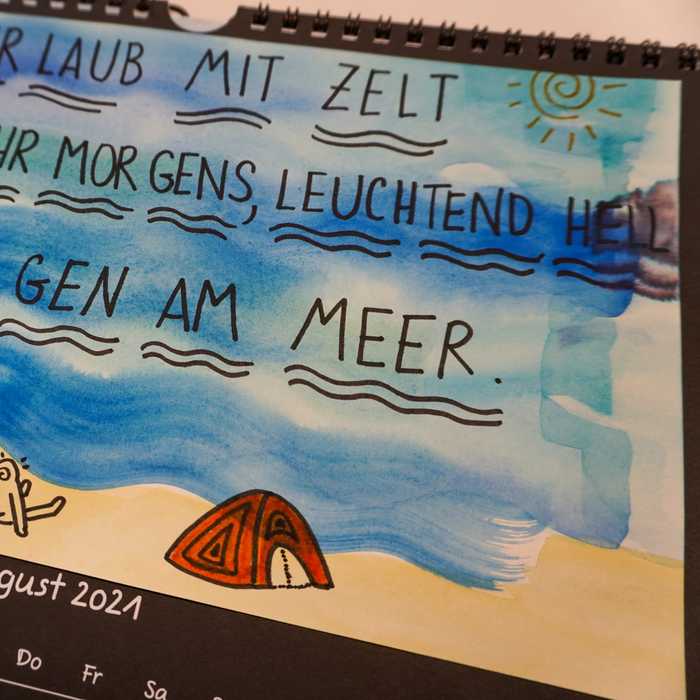 RLAUB MIT ZELT
HR MORGENS, LEUCHTEND HELL
GEN AM MEER.
gust 2021
Do Fr Sa